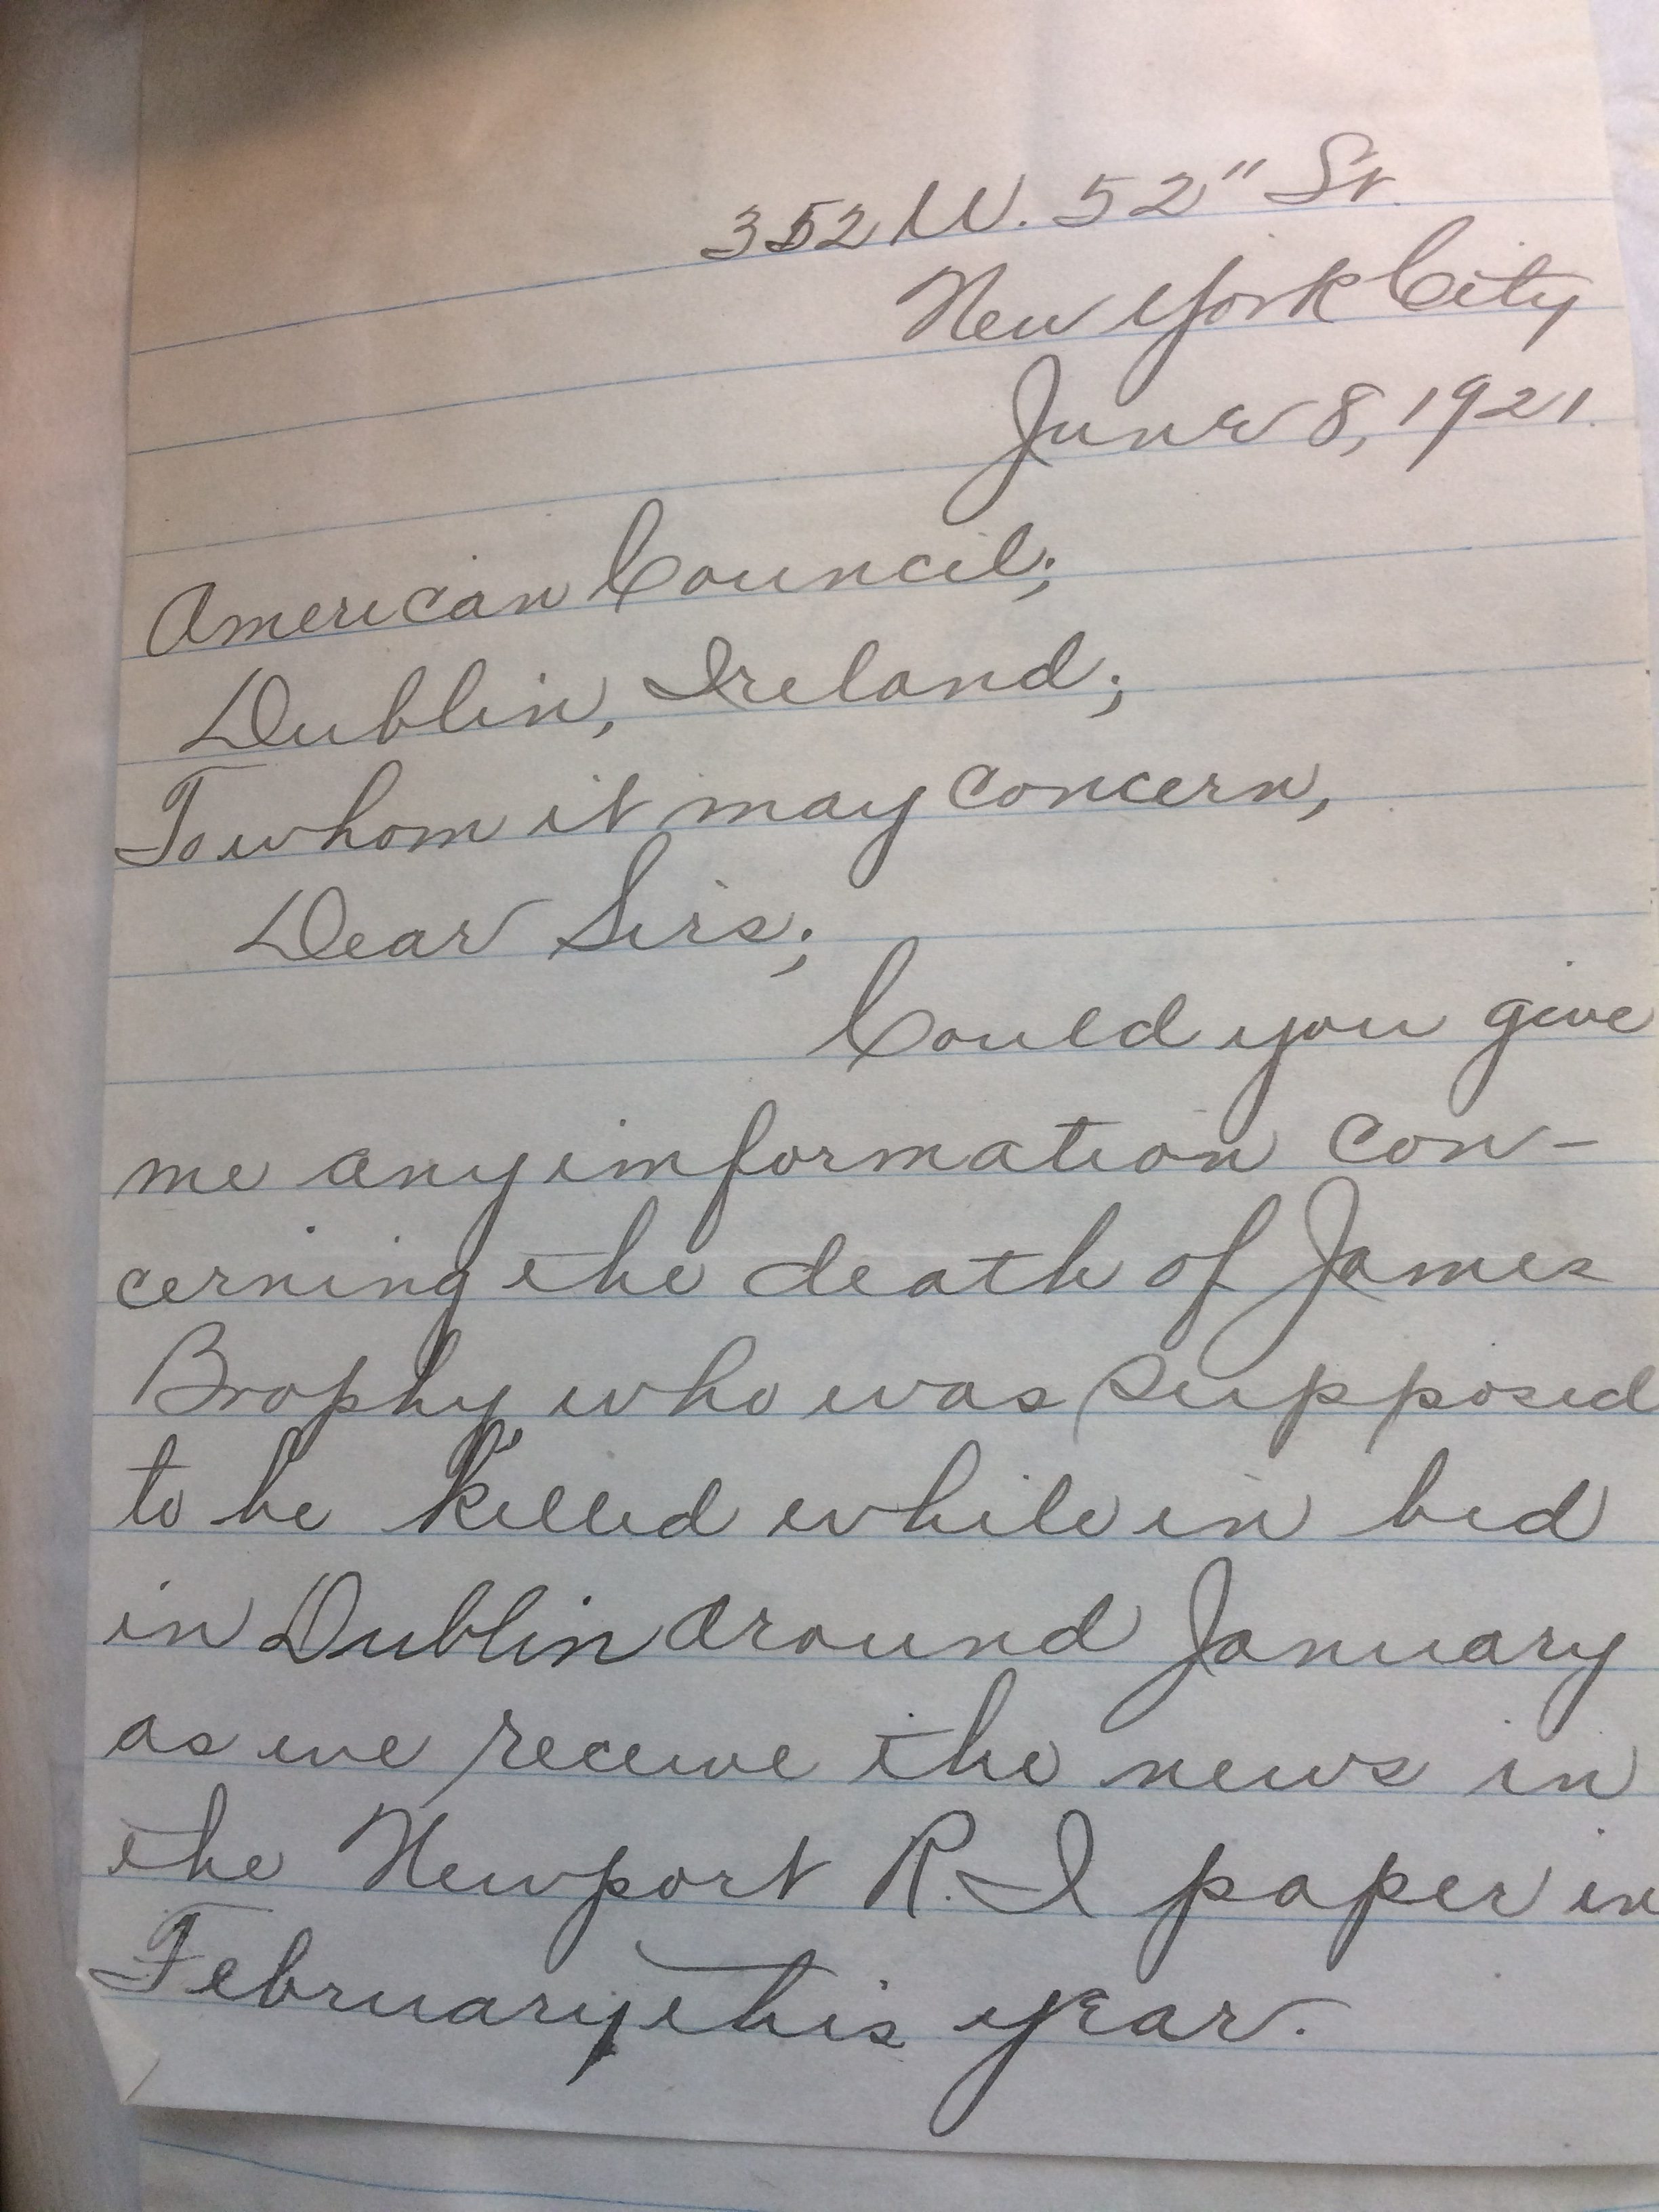 352 W. 52" St.
New York City
June 8, 1921.
American Council;
Dublin, Ireland;
To whom it may concern,
Dear Sirs;
Could you give
me any imformation con-
cerning the death of James
Brophy, who was supposed
to be killed while in bed
in Dublin around January
as we receive the news in
the Newport R.I paper in
February this year.